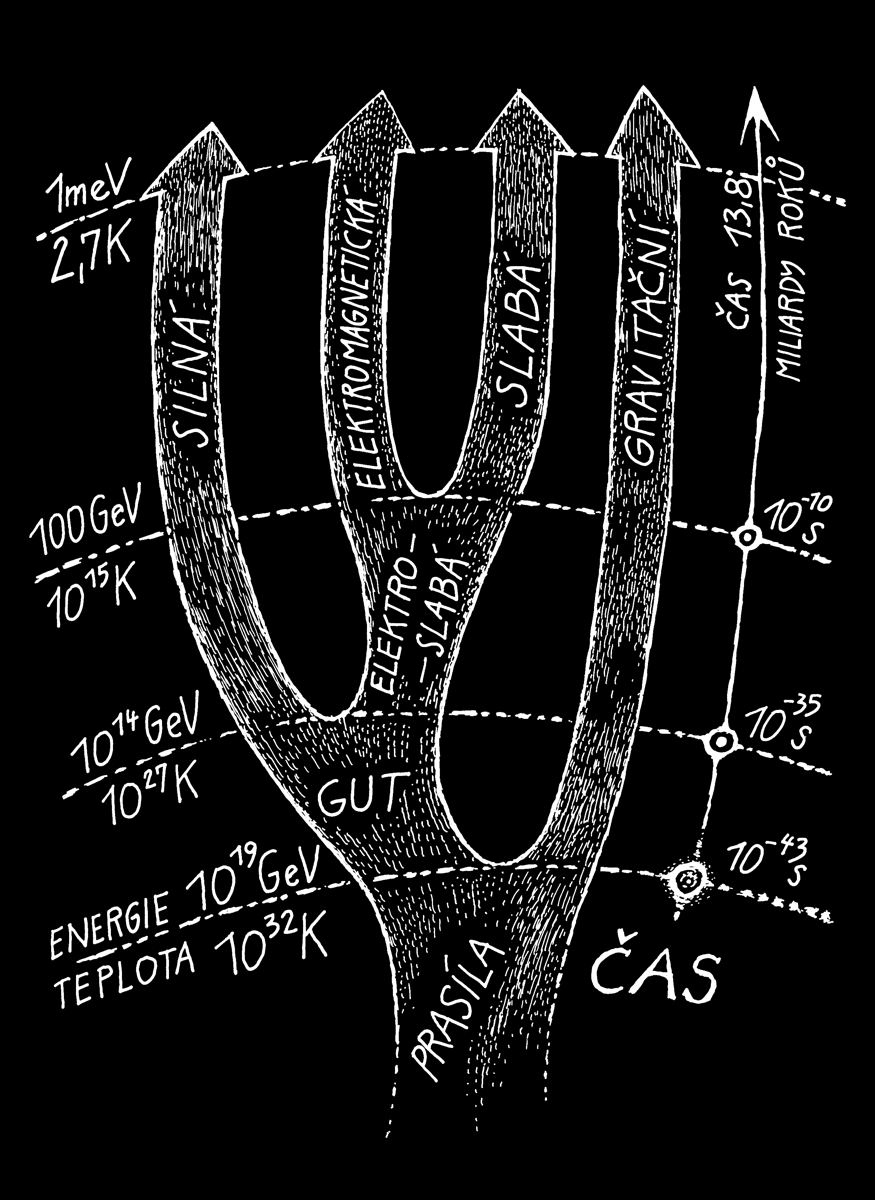 1meV
2,7K
SILNÁ
ELEKTROMAGNETICKÁ
SLABÁ
GRAVITAČNÍ
ČAS 13,8
MILIARDY ROKŮ
100 GeV
10¹⁵K
ELEKTRO–
–SLABÁ
10⁻¹⁰
s
10¹⁴ GeV
10²⁷K
GUT
10⁻³⁵
s
ENERGIE 10¹⁹GeV
TEPLOTA 10³²K
PRASÍLA
10⁻⁴³
s
ČAS